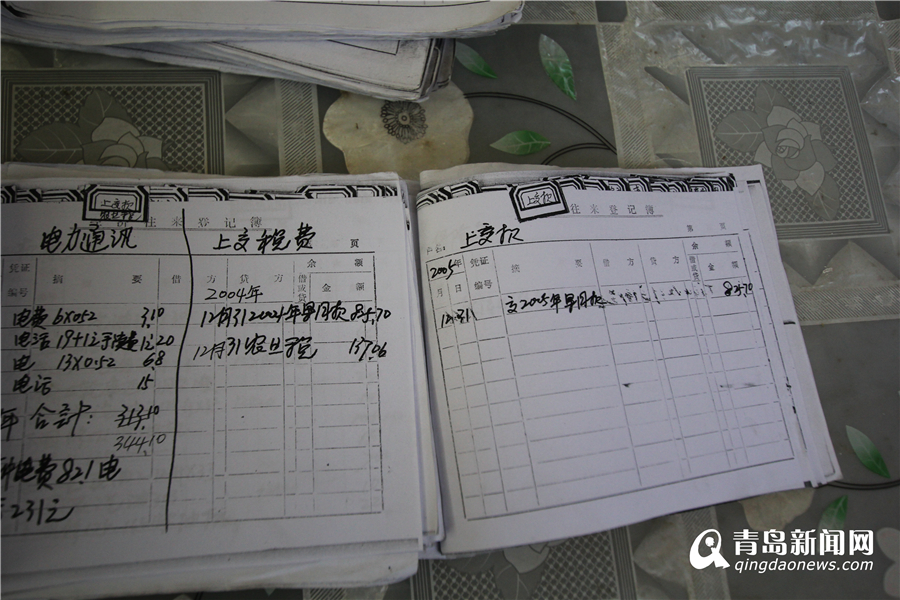 上交款
往来登记簿
电力通讯
上交税费
页
凭证 摘要 借方 贷方 借或贷 余额
编号 金额
2004年
电费6X0.52 3.10
12月31 2004年旱田款 85.70
电话19+12
12.20
12月31农业税 137.06
电 13X0.52 6.8
电话 15
年合计: 313.10
344.10
电费82.1电
231元
上交款
往来登记簿
上交款
第 页
2005年 凭证 摘要 借方 贷方 借或贷 余额
月 日 编号 金额
12.31 交2005年旱田款 85.70
青岛新闻网
qingdaonews.com